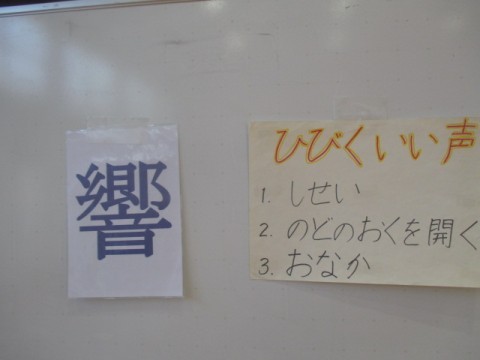 響
ひびくいい声
1. しせい
2. のどのおくを開く
3. おなか